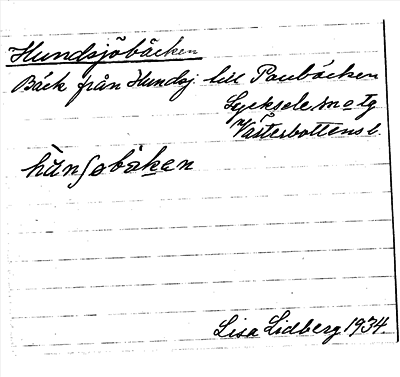 Hundsjöbäcken
Bäck från Hundsj. till Paubäcken
Lycksele sn o tg
Västerbottens l.
hùnʃobäken
Lisa Lidberg 1934.